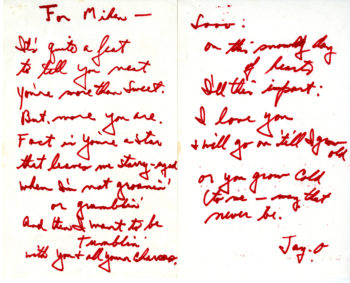 For Miken —
It's quite a feat
to tell you neat
You're more than sweet.
But, more you are.
Fact is you're a star
that leaves me starry-eyed
when I'm not groanin'
or grumblin'
And then I want to be
Tumblin'
with you & all your charms.
Sooo:
on this day
of hearts
I'll this impart:
I love you
& will go on till I grow
old
or you grow cold
to me — may that
never be.
Jay-O